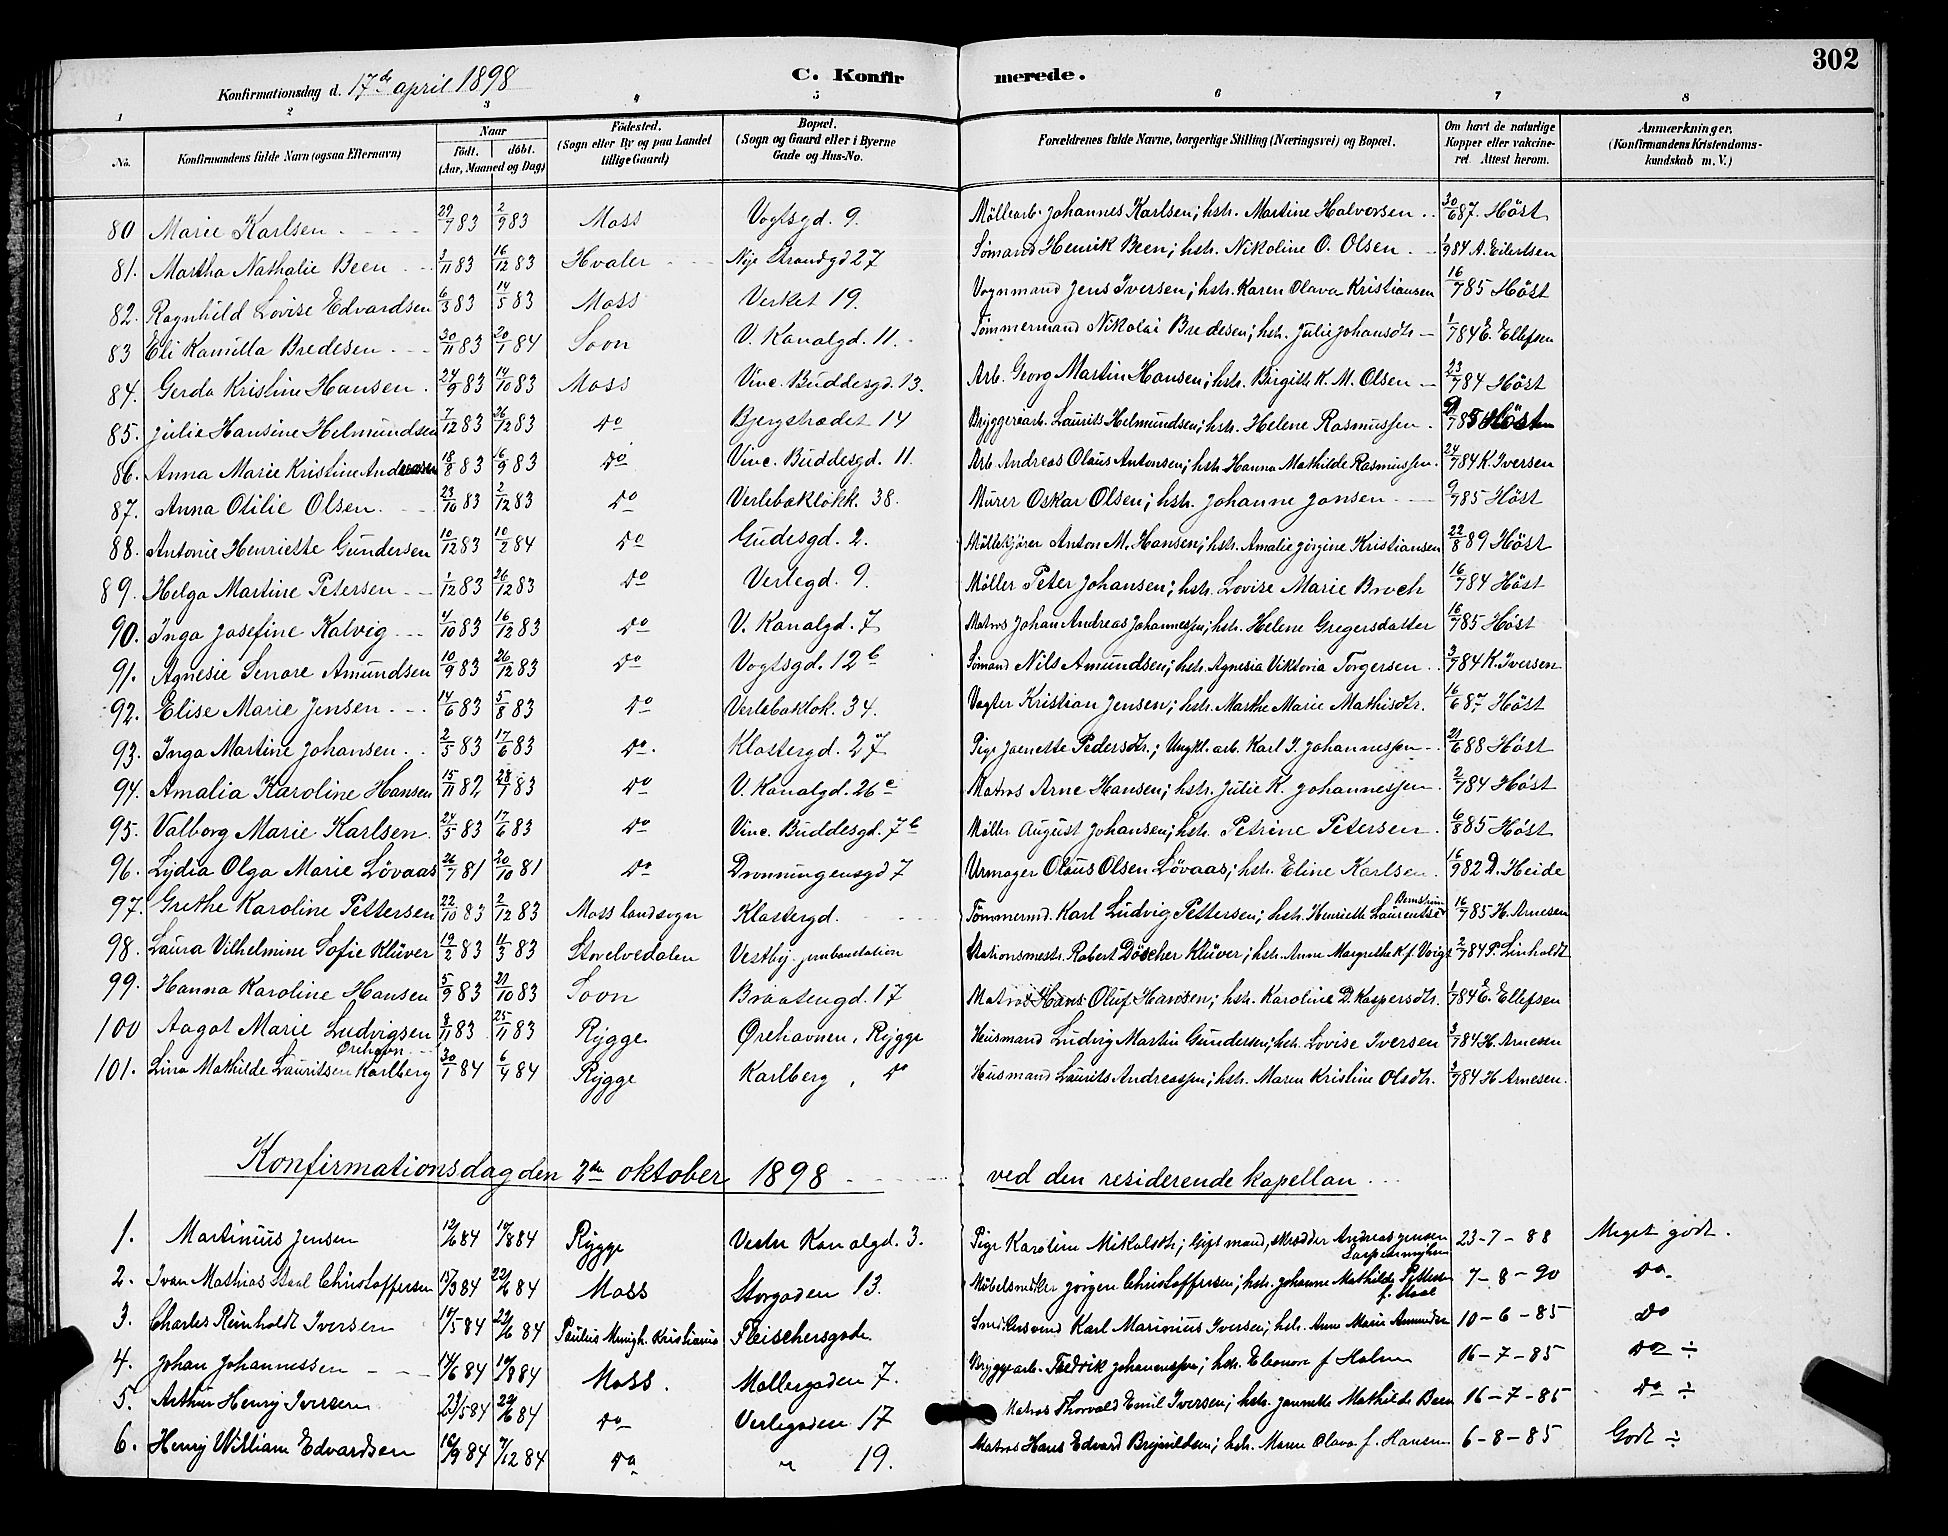 302
Konfirmationsdag d. 17de april 1898 C. Konfirmerede.
1 2 3 4 5 6 7 8
No. Konfirmandens fulde Navn (ogsaa Efternavn) Naar Født. døbt. (Aar, Maaned og Dag) Fødested. (Sogn eller By og paa Landet tillige Gaard) Bopæl. (Sogn og Gaard eller i Byerne Gade og Hus-No. Forældrenes fulde Navne, borgerlige Stilling (Næringsvei) og Bopæl. Om havt de naturlige Kopper eller vakcineret. Attest herom. Anmærkninger. (Konfirmandens Kristendomskundskab m. V.)
80 Marie Karlsen 29/7 83 2/9 83 Moss Vogtsgd. 9. Møllearb. Johannes Karlsen; hstr. Martine Halvorsen 30/6 87. Høst
81. Martha Nathalie Been 3/11 83 16/12 83 Hvaler Nye Strandgd 27 Sømand Henrik Been; hstr. Nikoline O. Olsen 1/9 84 A. Eilertsen
82. Ragnhild Lovise Edvardsen 6/3 83 14/5 83 Moss Verket 19. Vognmand Jens Iversen; hstr. Karen Olava Kristiansen 16/7 85 Høst
83 Eli Kamilla Bredesen 30/11 83 20/1 84 Soon V. Kanalgd. 11. Tømmermand Nikolai Bredesen; hstr. Julie Johansdtr 1/7 84 E. Ellefsen
84. Gerda Kristine Hansen 24/9 83 14/10 83 Moss Vinc. Buddesgd. 13. Arb. Georg Martin Hansen; hstr. Birgitte K. M. Olsen 23/7 84 Høst
85. Julie Hansine Helmundsen 7/12 83 26/12 83 Do Bjergstrædet 14 Bryggeriarb. Laurits Helmundsen; hstr. Helene Rasmussen 9/7 85 Høst
86. Anna Marie Kristine Andreasen 18/8 83 16/9 83 Do Vinc. Buddesgd. 11. Arb. Andreas Olaus Antonsen; hstr. Hanna Mathilde Rasmussen 24/7 84 K. Iversen
87. Anna Otilie Olsen 23/10 83 2/12 83 Do Verlebakløkk. 38. Murer Oskar Olsen; hstr. Johanne Jonsen 9/7 85 Høst
88. Antonie Henriette Gundersen 10/12 83 10/2 84 Do Gudesgd. 2. Møllekjører Anton M. Hansen; hstr. Amalie Jørgine Kristiansen 22/8 89 Høst
89. Helga Martine Petersen 1/12 83 26/12 83 Do Verlegd. 9. Møller Peter Johansen; hstr. Lovise Marie Broch 16/7 84 Høst
90. Inga Josefine Kalvig 4/10 83 16/12 83 Do V. Kanalgd. 7 Matros Johan Andreas Johannessen; hstr. Helene Gregersdatter 16/7 85 Høst
91. Agnesie Lenore Amundsen 10/9 83 26/12 83 Do Vogtsgd. 12b Sømand Nils Amundsen; hstr. Agnesia Viktoria Torgersen 3/7 84 K. Iversen
92. Elise Marie Jensen 14/6 83 5/8 83 Do Verlebakløk. 34. Vagter Kristian Jensen; hstr. Marthe Marie Mathisdtr. 16/6 87 Høst
93. Inga Martine Johansen 2/5 83 17/6 83 Do Klostergd. 27 Pige Jaenette Pedersdtr.; Ungkl. arb. Karl J. Johannessen 21/6 88 Høst
94. Amalia Karoline Hansen 15/11 82 28/7 83 Do V. Kanalgd. 26c Matros Arne Hansen; hstr. Julie K. Johannessen 2/7 84 Høst
95. Valborg Marie Karlsen 24/5 83 17/6 83 Do Vinc. Buddesgd. 7b Møller August Johansen; hstr. Petrine Petersen 6/8 85 Høst
96. Lydia Olga Marie Løvaas 26/7 81 20/10 81 Do Dronningensgd 7 Urmager Olaus Olsen Løvaas; hstr. Eline Karlsen 16/9 82 D. Heide
97. Grethe Karoline Pettersen 22/10 83 2/12 83 Moss landsogn Klostergd. Tømmermd. Karl Ludvig Pettersen; hstr. Henriette Laurentse 16/7 85 H. Arnesen
98. Laura Vilhelmine Sofie Klüver 19/2 83 11/3 83 Storelvedalen Vestby jernbanstation Stationsmestr. Robert Döscher Klüver; hstr. Anne Margrethe K. f. Voigt 2/7 84 P. Linholdt
99. Hanna Karoline Hansen 5/9 83 21/10 83 Soon Braatengd. 17 Matros Hans Oluf Hansen; hstr. Karoline D. Kaspersdtr. 1/7 84 E. Ellefsen
100 Aagot Marie Ludvigsen Ørehavn 8/11 83 25/11 83 Rygge Ørehavnen, Rygge Husmand Ludvig Martin Gundersen; hstr. Lovise Iversen 3/7 84 H. Arnesen
101. Lina Mathilde Lauritsen Karlberg 30/1 84 6/4 84 Rygge Karlberg, Do Husmand Laurits Andreassen; hstr. Maren Kristine Olsdtr. 3/7 84 H. Arnesen.
Konfirmationsdag den 2den oktober 1898 ved den residerende kapellan
1. Martinius Jensen 12/6 84 10/8 84 Rygge Vestre Kanalgd. 3. Pige Karoline Mikalsdtr; Gift mand, skrædder Andreas Jensen 23-7-88 Meget godt.
2. Ivan Mathias Staal Christoffersen 15/3 84 22/6 84 Moss Storgaden 13. Møbelsnedker Jørgen Christoffersen; hstr. Johanne Mathilde Pettersen f. Staal 7-8-90 Do
3. Charles Reinholdt Iversen 10/5 84 29/6 84 Paulus Menigh. Kristiania Fleischersgade. Snedkersvend Karl Marinius Iversen; hstr. Anne Marie Amundsen 10-6-85 Do
4. Johan Johannessen 14/6 84 10/8 84 Moss. Møllergaden 7. Bryggearb. Fredrik Johannessen; hstr. Eleonore f Holm 16-7-85 Do ÷
5. Arthur Henry Iversen 23/5 84 29/6 84 Do Verlegaden 17 Matros Thorvald Emil Iversen; hstr. Jannette Mathilde Been 16-7-85 Do ÷
6. Henry William Edvardsen 16/9 84 7/12 84 Do " 19. Matros Hans Edvard Brynildsen; hstr. Maren Olava f. Hansen 6-8-85 Godt ÷